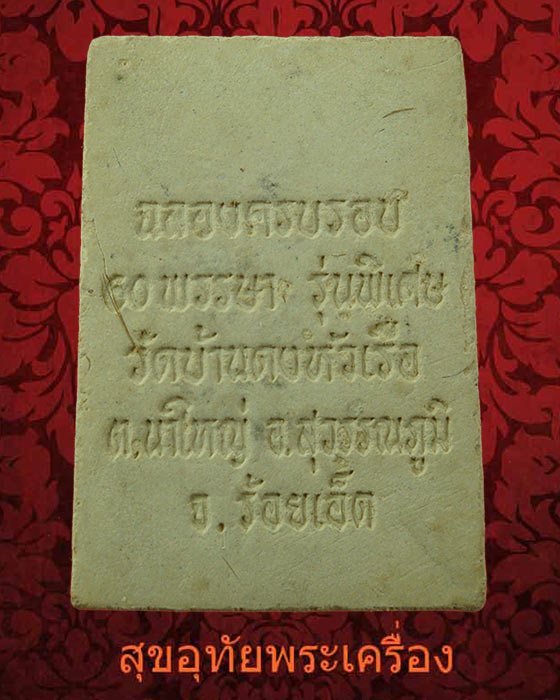 ฉลองครบรอบ
๖๐ พรรษา รุ่นพิเศษ
วัดบ้านดงหัวเรือ
ต.นาใหญ่ อ.สุวรรณภูมิ
จ.ร้อยเอ็ด
สุขอุทัยพระเครื่อง